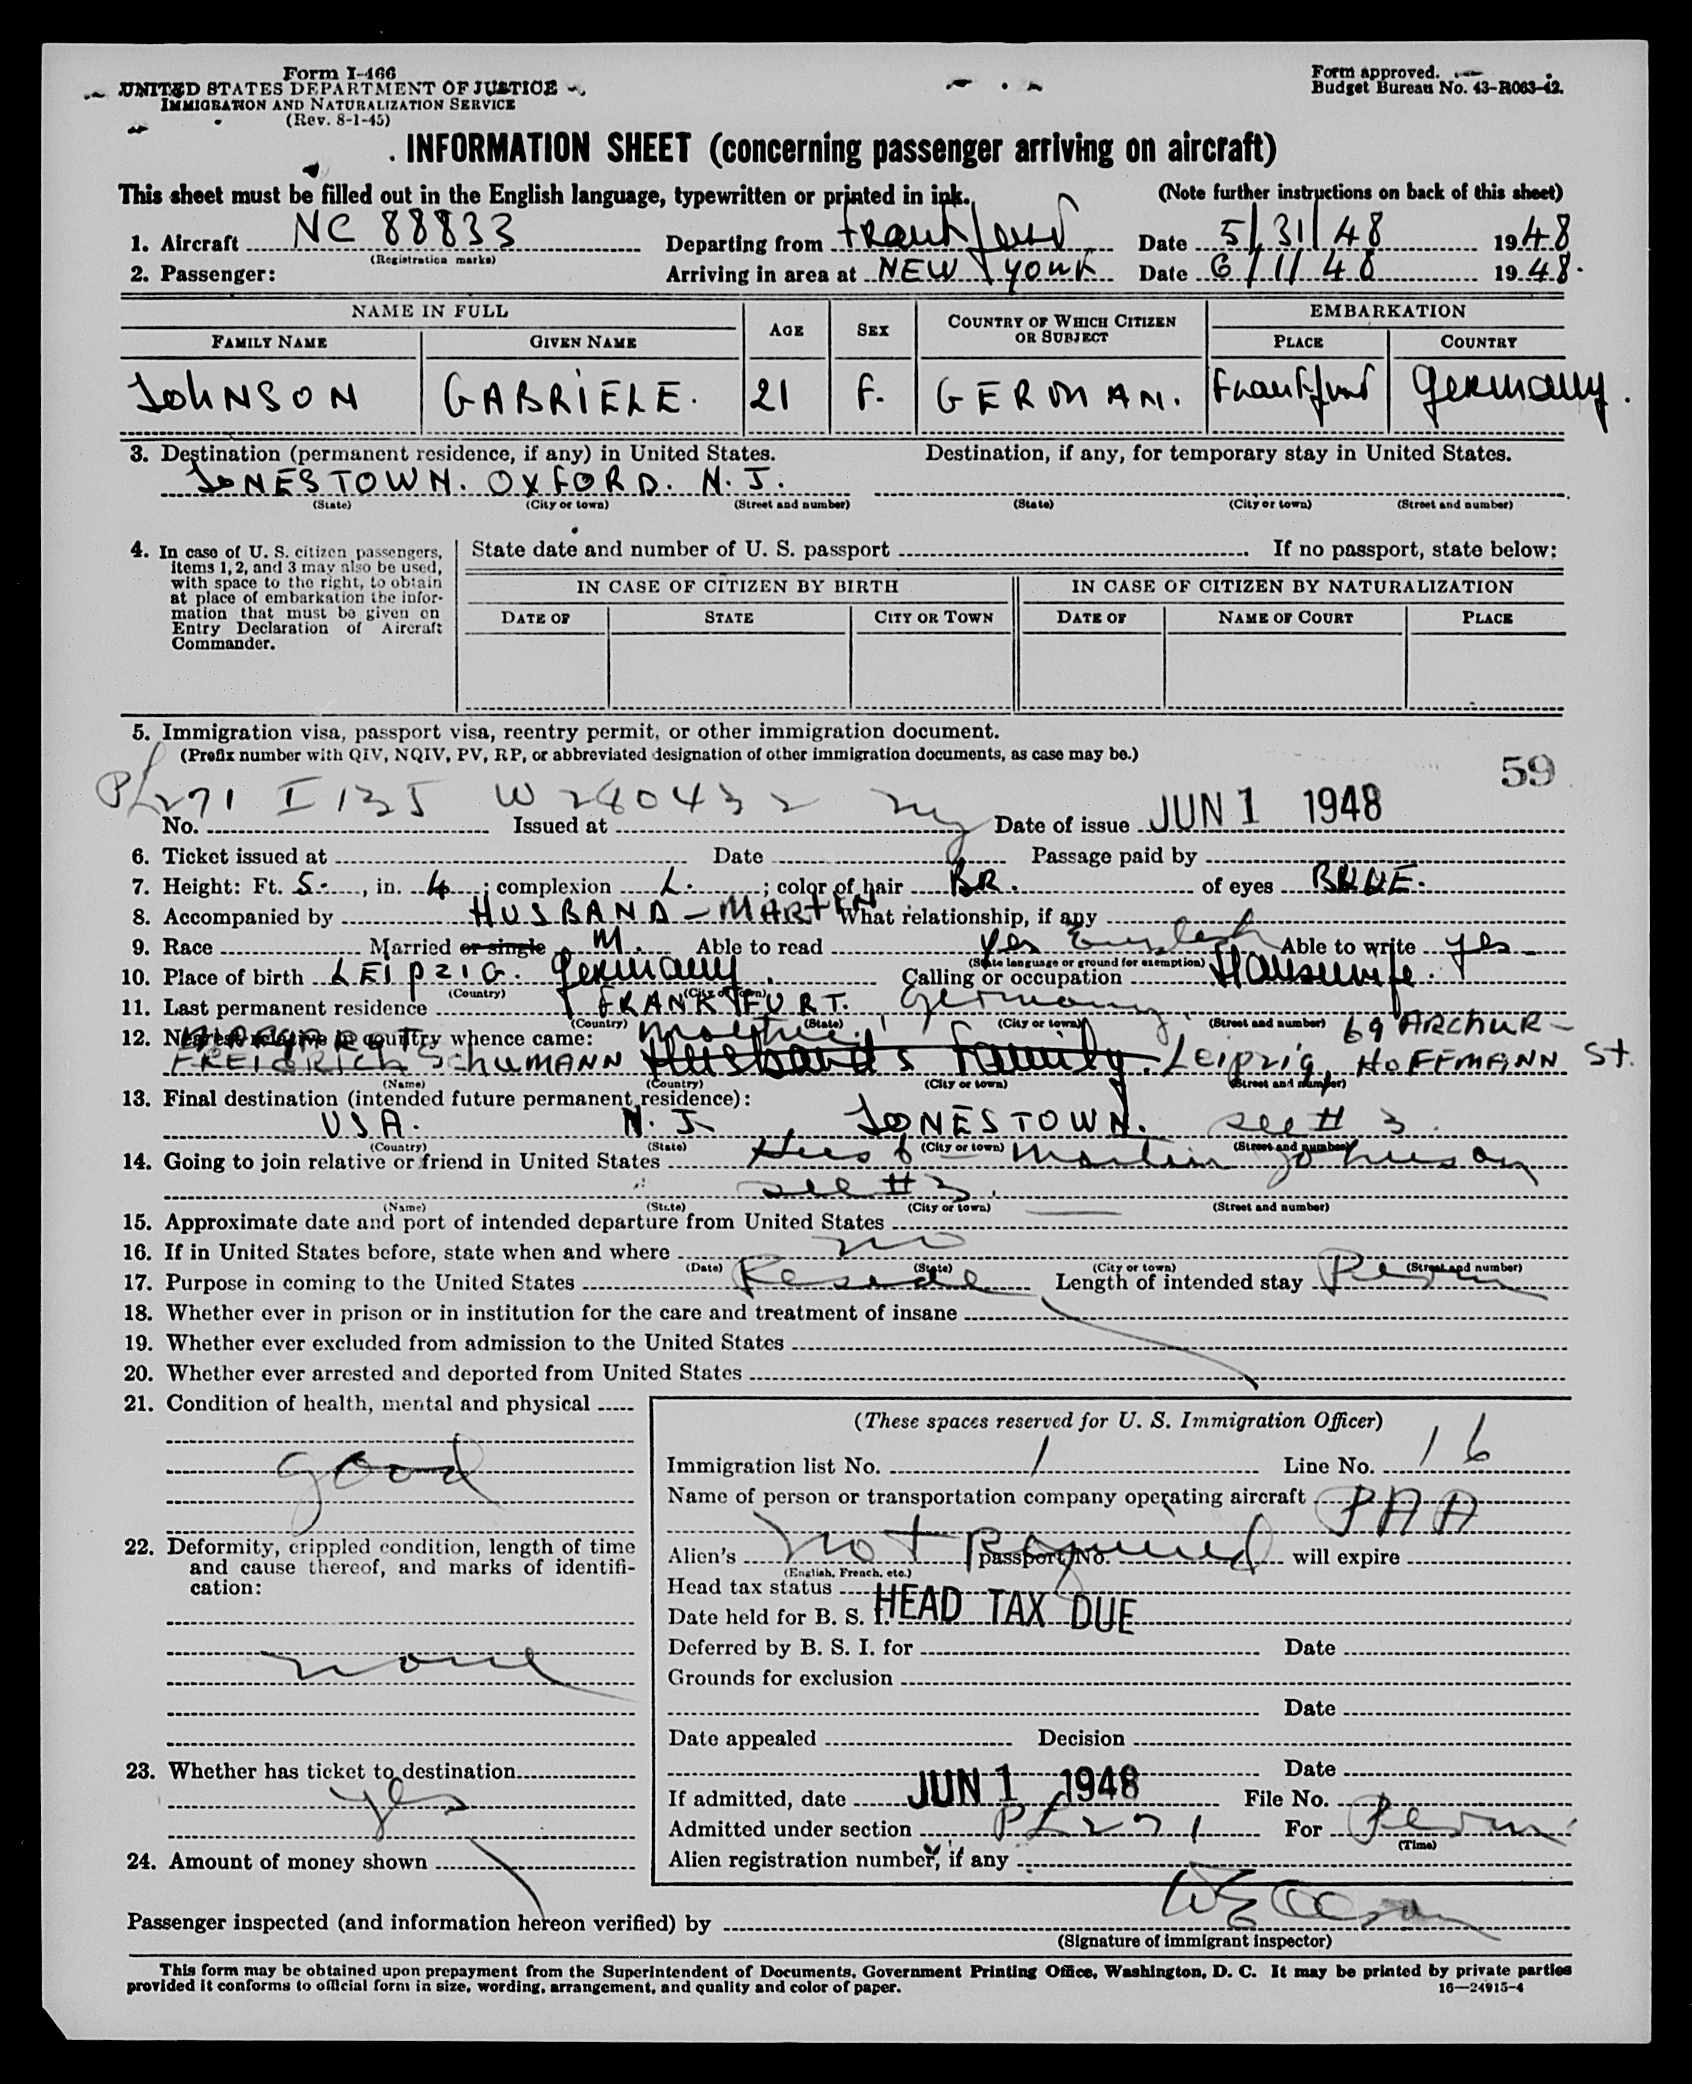 Form I-466
UNITED STATES DEPARTMENT OF JUSTICE
IMMIGRATION AND NATURALIZATION SERVICE
(Rev. 8-1-45)
Form approved.
Budget Bureau No. 43-R063-42.
INFORMATION SHEET (concerning passenger arriving on aircraft)
This sheet must be filled out in the English language, typewritten or printed in ink.
(Note further instructions on back of this sheet)
1. Aircraft NC 88833 Departing from Frankfurt Date 5/31/48 1948
(Registration marks)
2. Passenger: Arriving in area at NEW YORK Date 6/1/48 1948.
NAME IN FULL
AGE
SEX
COUNTRY OF WHICH CITIZEN OR SUBJECT
EMBARKATION
FAMILY NAME GIVEN NAME PLACE COUNTRY
JOHNSON GABRIELE. 21 F. GERMAN. Frankfurt Germany.
3. Destination (permanent residence, if any) in United States. Destination, if any, for temporary stay in United States.
JONESTOWN. OXFORD. N. J.
(State) (City or town) (Street and number) (State) (City or town) (Street and number)
4. In case of U. S. citizen passengers, items 1, 2, and 3 may also be used, with space to the right, to obtain at place of embarkation the information that must be given on Entry Declaration of Aircraft Commander.
State date and number of U. S. passport If no passport, state below:
IN CASE OF CITIZEN BY BIRTH IN CASE OF CITIZEN BY NATURALIZATION
DATE OF STATE CITY OR TOWN DATE OF NAME OF COURT PLACE
5. Immigration visa, passport visa, reentry permit, or other immigration document.
(Prefix number with QIV, NQIV, PV, RP, or abbreviated designation of other immigration documents, as case may be.)
59
PL 271 I 135 W 280432 ny
No. Issued at Date of issue JUN 1 1948
6. Ticket issued at Date Passage paid by
7. Height: Ft. 5., in. 4; complexion L.; color of hair BR. of eyes BLUE.
8. Accompanied by HUSBAND - MARTIN What relationship, if any
9. Race Married or single M. Able to read yes English Able to write yes
(State language or ground for exemption)
10. Place of birth LEIPZIG. Germany. Calling or occupation Housewife.
(Country) (City or town)
11. Last permanent residence FRANKFURT. Germany
(Country) (State) (City or town) (Street and number)
12. Nearest relative in country whence came: Mother 69 ARTHUR-
SCHUMANN Husband's family. Leipzig, HOFFMANN St.
(Name) (Country) (City or town) (Street and number)
13. Final destination (intended future permanent residence):
USA. N. J. JONESTOWN. see # 3.
(Country) (State) (City or town) (Street and number)
14. Going to join relative or friend in United States Husb - Martin Johnson
see # 3.
(Name) (State) (City or town) (Street and number)
15. Approximate date and port of intended departure from United States
16. If in United States before, state when and where no
(Date) (State) (City or town) (Street and number)
17. Purpose in coming to the United States Reside Length of intended stay Perm
18. Whether ever in prison or in institution for the care and treatment of insane
19. Whether ever excluded from admission to the United States
20. Whether ever arrested and deported from United States
21. Condition of health, mental and physical
good
22. Deformity, crippled condition, length of time and cause thereof, and marks of identification:
none
23. Whether has ticket to destination
yes
24. Amount of money shown
(These spaces reserved for U. S. Immigration Officer)
Immigration list No. 1 Line No. 16
Name of person or transportation company operating aircraft PAA
Alien's not Required passport No. will expire
(English, French, etc.)
Head tax status
Date held for B. S. I. HEAD TAX DUE
Deferred by B. S. I. for Date
Grounds for exclusion
Date
Date appealed Decision
Date
If admitted, date JUN 1 1948 File No.
Admitted under section PL 271 For Perm
(Time)
Alien registration number, if any
Passenger inspected (and information hereon verified) by
(Signature of immigrant inspector)
This form may be obtained upon prepayment from the Superintendent of Documents, Government Printing Office, Washington, D. C. It may be printed by private parties
provided it conforms to official form in size, wording, arrangement, and quality and color of paper.
16—24915-4